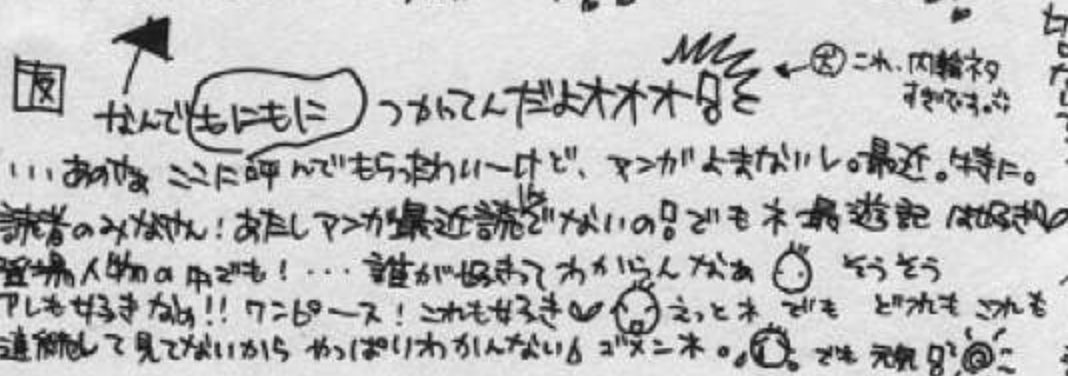 友 なんでもにもに つかってんだよオオオ!! 
犬 これ、内輪ネタ
すぎです。
...あのさぁ ここに呼んでもらったわいーけど、マンガよまないし。最近。特に。
読者のみなさん!あたしマンガ最近読んでないの!!でもネ 最遊記 は好き♡の
登場人物の中でも!...誰が好きってわからんなぁ そうそう
アレも好きなの!!ワンピース!これも好き♡ えっとネ でも どれも これも
連続して見てないから やっぱりわかんない ゴメンネ。 でも 元気!!